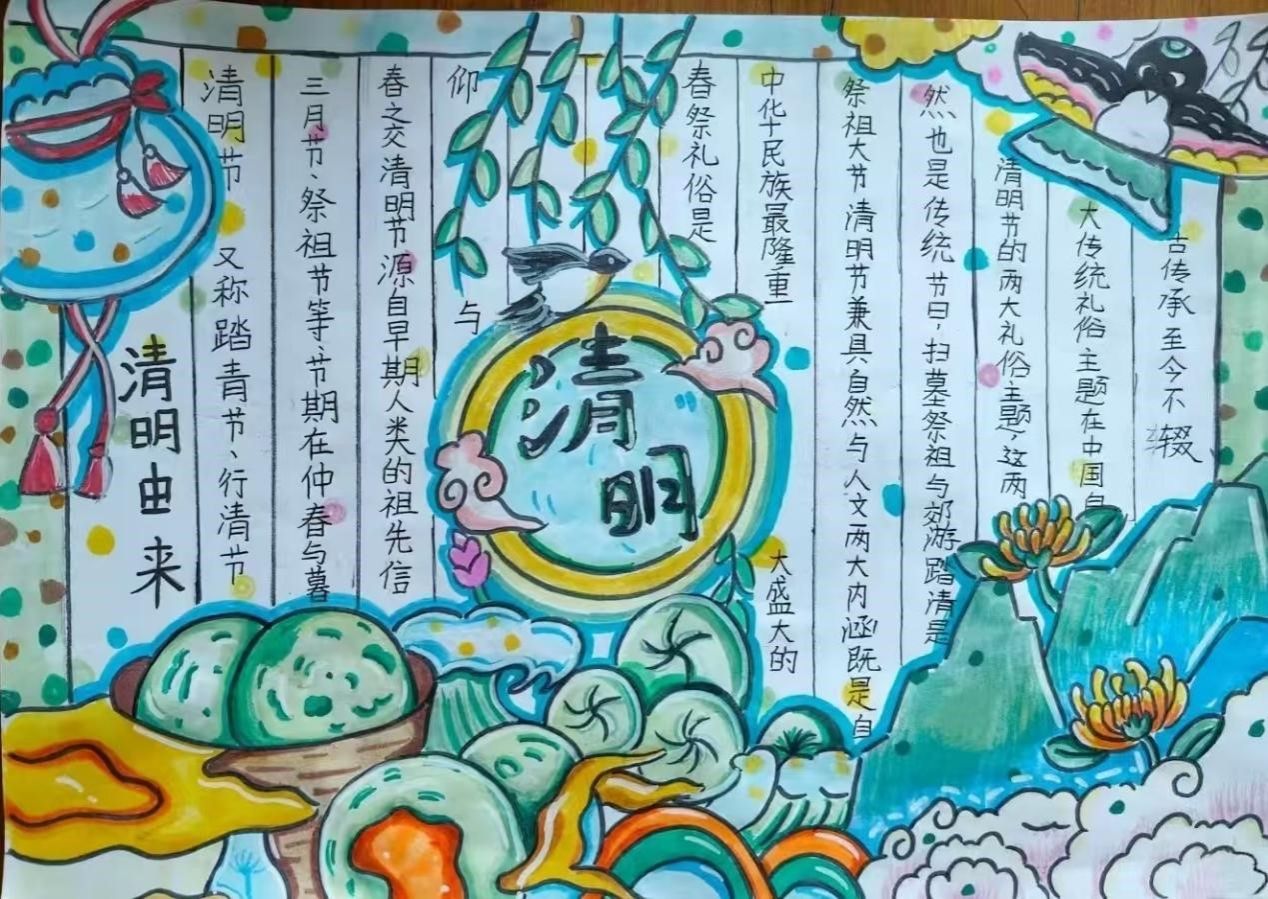 清明由来
清明节 又称踏青节、行清节
三月节、祭祖节等、节期在仲春与暮
春之交清明节源自早期人类的祖先信
仰 与
清明
春祭礼俗是
中华十民族最隆重 大盛大的
祭祖大节清明节兼具自然与人文两大内涵既是自
然也是传统节日，扫墓祭祖与郊游踏清是
清明节的两大礼俗主题，这两
大传统礼俗主题在中国自
古传承至今不辍